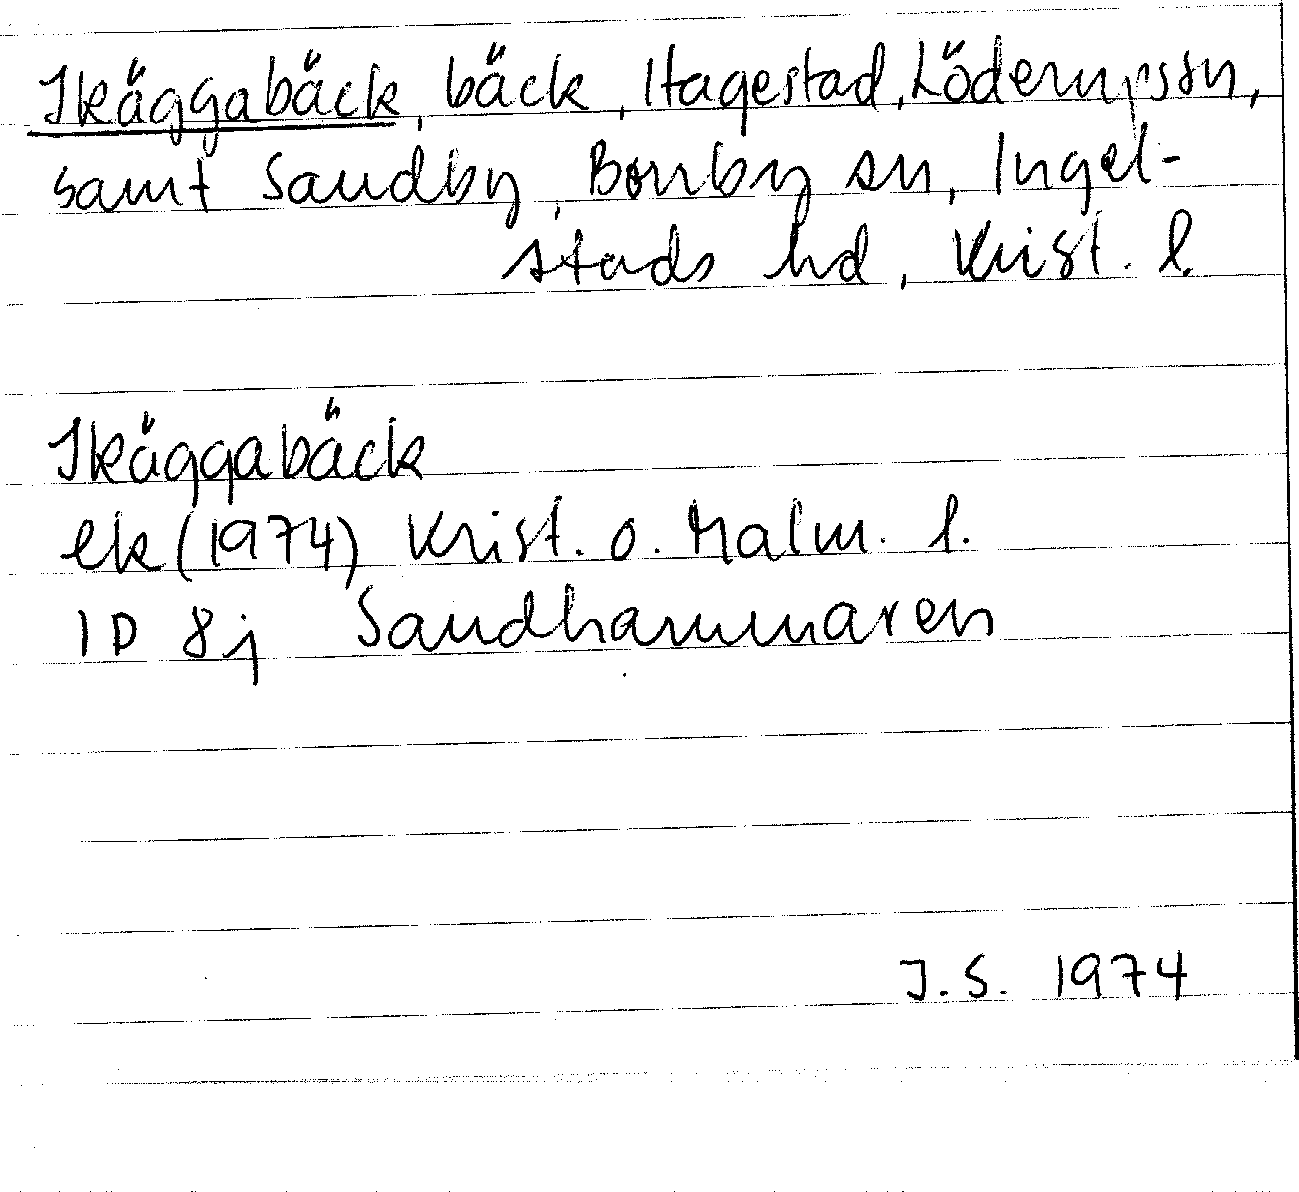 Skäggabäck, bäck, Hagestad, Löderups sn,
samt Sandby, Borrby sn, Ingel-
stads hd, Krist. l.
Skäggabäck
ek (1974) Krist. o. Malm. l.
1D 8j Sandhammaren
J.S. 1974